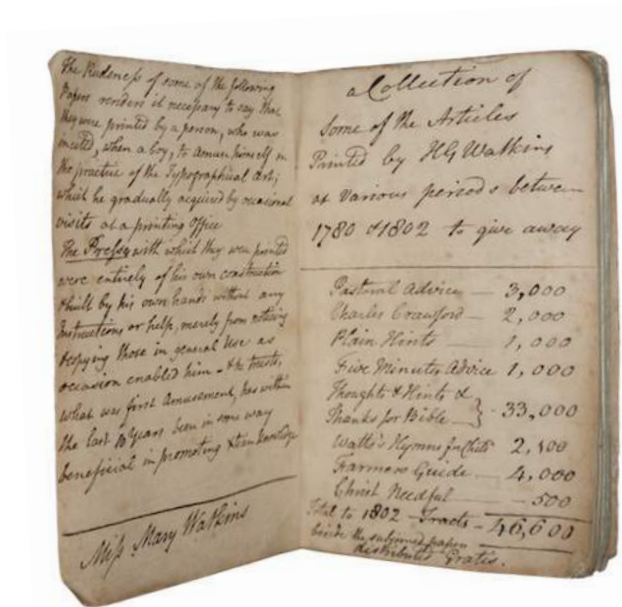 The Rudeness of some of the following
Papers renders it necessary to say that
they were printed by a person, who was
incited, when a boy, to amuse himself in
the practice of the Typographical Art;
which he gradually acquired by occasional
visits at a printing office
The Presses with which they were printed
were entirely of his own construction
& built by his own hands without any
Instructions or help, merely from noticing
& copying those in general use as
occasion enabled him - & he trusts,
what was first Amusement, has within
the last 10 Years been in some way
beneficial in promoting Xtian knowledge
Miss Mary Watkins
a Collection of
Some of the Articles
Printed by HG Watkins
at Various periods between
1780 & 1802 to give away
Pastoral Advice — 3,000
Charles Crawford — 2,000
Plain Hints — 1,000
Five Minutes Advice 1,000
Thoughts & Hints &
Thanks for Bible } 33,000
Watts's Hymns for 2,100
Farmers Guide — 4,000
Christ Needful — 500
Total to 1802 Tracts - 46,600
beside the subjoined papers
distributed Gratis.